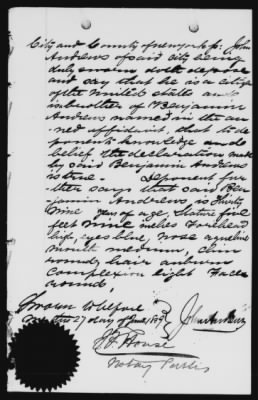 City and County of New york ss: John
Andrews of said city being
duly sworn doth depose
and say that he is a citizen
of the United States and
is brother of Benjamin
Andrews named in the an-
nexed affidavit, that to de-
ponents knowledge and
belief the declaration made
by said Benjamin Andrews
is true. Deponent fur-
ther says that said Ben-
jamin Andrews is thirty
nine years of age, stature five
feet nine inches Forehead
high, eyes blue, nose aquiline
mouth medium, chin
round, hair auburn
Complexion light Face
round,
Sworn to before
this 27 day of
John Andrews
House
Notary Public